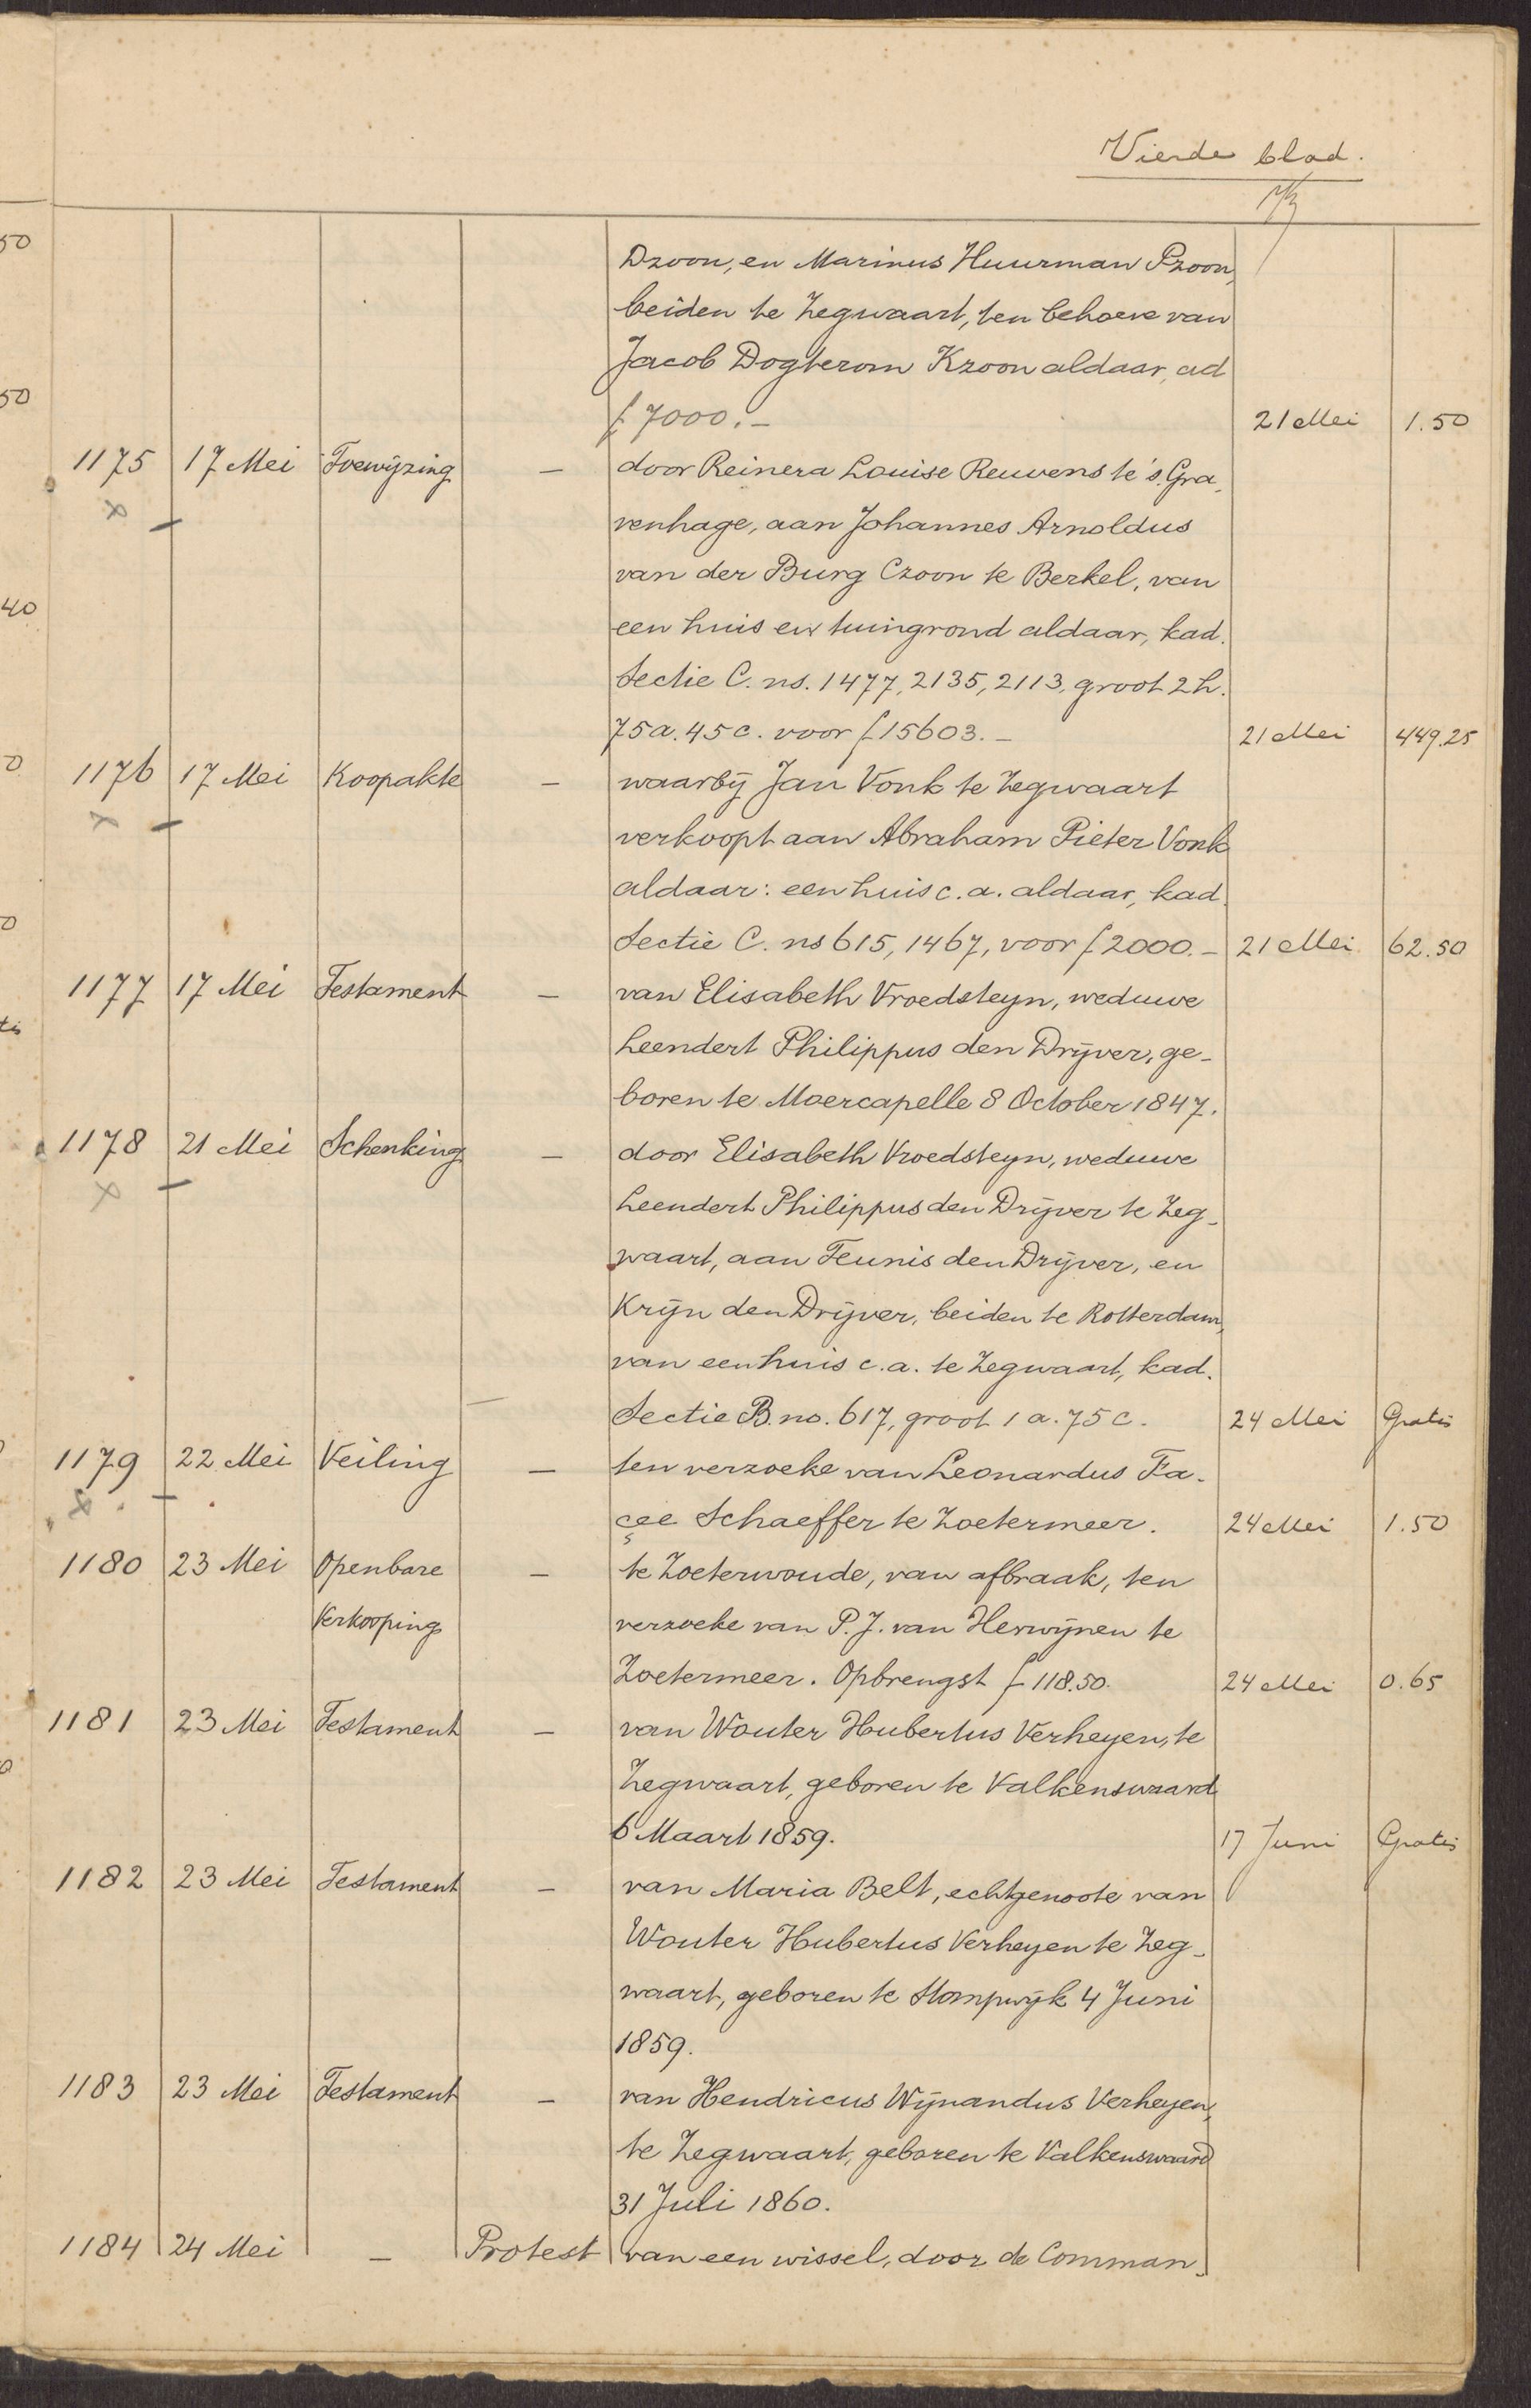 Vierde blad.
Dzoon, en Marinus Huurman Pzoon,
beiden te Zegwaart, ten behoeve van
Jacob Dogterom Kzoon aldaar, ad
f 7000.- 21 Mei 1.50
1175 17 Mei Toewijzing - door Reinera Louise Reuvens te 's Gra-
venhage, aan Johannes Arnoldus
van der Burg Czoon te Berkel, van
een huis en tuingrond aldaar, kad.
Sectie C. ns. 1477, 2135, 2113, groot 2 h.
75 a. 45 c. voor f 15603.- 21 Mei 449.25
1176 17 Mei Koopakte - waarbij Jan Vonk te Zegwaart
verkoopt aan Abraham Pieter Vonk
aldaar: een huis c.a. aldaar, kad.
Sectie C. ns 615, 1467, voor f 2000.- 21 Mei 62.50
1177 17 Mei Testament - van Elisabeth Vroedsteyn, weduwe
Leendert Philippus den Drijver, ge-
boren te Moercapelle 8 October 1847.
1178 21 Mei Schenking - door Elisabeth Vroedsteyn, weduwe
Leendert Philippus den Drijver te Zeg-
waart, aan Teunis den Drijver, en
Krijn den Drijver, beiden te Rotterdam,
van een huis c.a. te Zegwaart, kad.
Sectie B. no. 617, groot 1 a. 75 c. 24 Mei Gratis
1179 22 Mei Veiling - ten verzoeke van Leonardus Fa-
çee Schaeffer te Zoetermeer. 24 Mei 1.50
1180 23 Mei Openbare - te Zoeterwoude, van afbraak, ten
Verkooping verzoeke van P. J. van Herwijnen te
Zoetermeer. Opbrengst f 118.50. 24 Mei 0.65
1181 23 Mei Testament - van Wouter Hubertus Verheyen, te
Zegwaart, geboren te Valkenswaard
6 Maart 1859. 17 Juni Gratis
1182 23 Mei Testament - van Maria Belt, echtgenoote van
Wouter Hubertus Verheyen te Zeg-
waart, geboren te Stompwijk 4 Juni
1859.
1183 23 Mei Testament - van Hendricus Wijnandus Verheyen,
te Zegwaart, geboren te Valkenswaard
31 Juli 1860.
1184 24 Mei - Protest van een wissel, door de Comman-